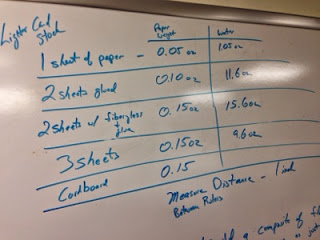 Lighter Card Stock
Paper Weight Water
1 sheet of paper - 0.05oz 1.05oz
2 sheets glued 0.10oz 11.6oz
2 sheets w/ fiberglass + glue 0.15oz 15.6oz
3 sheets 0.15oz 9.6oz
Cardboard 0.15
Measure Distance - 1 inch
Between
a composite of